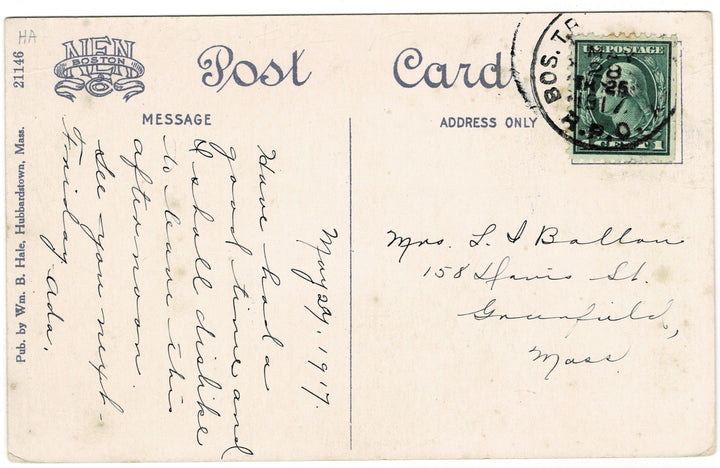 HA
21146
NEN
BOSTON
Post Card
MESSAGE
ADDRESS ONLY
Pub. by Wm. B. Hale, Hubbardstown, Mass.
BOS. T
28
1917
R.P.O.
U.S. POSTAGE
1 CENT 1
May 29, 1917.
Have had a
good time and
I shall dislike
to leave this
afternoon.
See you next-
Friday. Ada.
Mrs. L. I Ballou
158 Davis St.
Greenfield,
Mass.